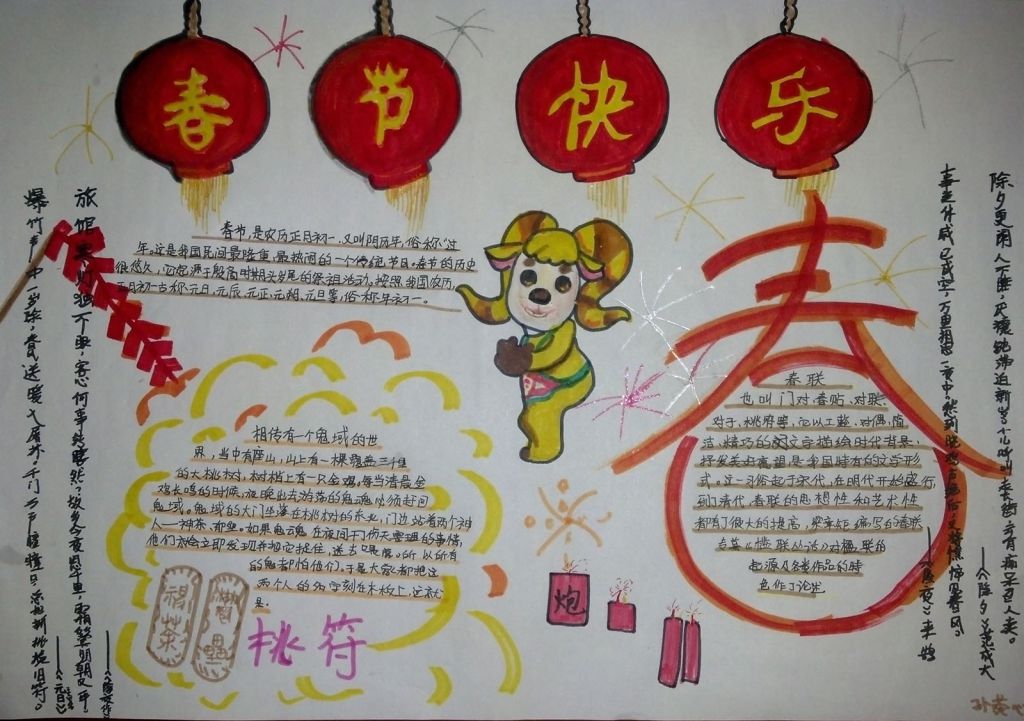 春节快乐
春节,是农历正月初一,又叫阴历年,俗称“过
年。这是我国民间最隆重、最热闹的一个传统节日。春节的历史
很悠久,它起源于殷商时期年头岁尾的祭祖活动。按照我国农历,
正月初一古称元日、元辰、元正、元朔、元旦等,俗称年初一。
相传有一个鬼域的世
界,当中有座山,山上有一棵覆盖三千里
的大桃树,树梢上有一只金鸡。每当清晨金
鸡长鸣的时候,夜晚出去游荡的鬼魂必须赶回
鬼域。鬼域的大门坐落在桃树的东北,门边站着两个神
人——神荼、郁垒。如果鬼魂在夜间干了伤天害理的事情,
他们就会立即发现并将它捉住,送去喂虎。所以所有
的鬼都怕他们,于是大家都把这
两个人的名字刻在木板上,这就
是。
桃符
炮
春
春联
也叫门对、春贴、对联
对子,桃符等,它以工整、对偶、简
洁、精巧的文字描绘时代背景,
抒发美好愿望,是我国特有的文学形
式。这一习俗起于宋代,在明代开始盛行,
到了清代,春联的思想性和艺术性
都有了很大的提高,梁章钜编写的春联
专著《楹联丛话》对楹联的
起源及各类作品的特
色作了论述
除夕更阑人不睡,厌禳钝滞迫新岁,小儿呼叫走长街,云有痴呆召人卖。
——《除夕》范成大
事去休咸已成空,万里相思一夜中。
——《除夜》来鹄
旅馆寒灯独不眠,客心何事转凄然?故乡今夜思千里,霜鬓明朝又一年。
爆竹声中一岁除,春风送暖入屠苏。千门万户曈曈日,总把新桃换旧符。
——《元日》